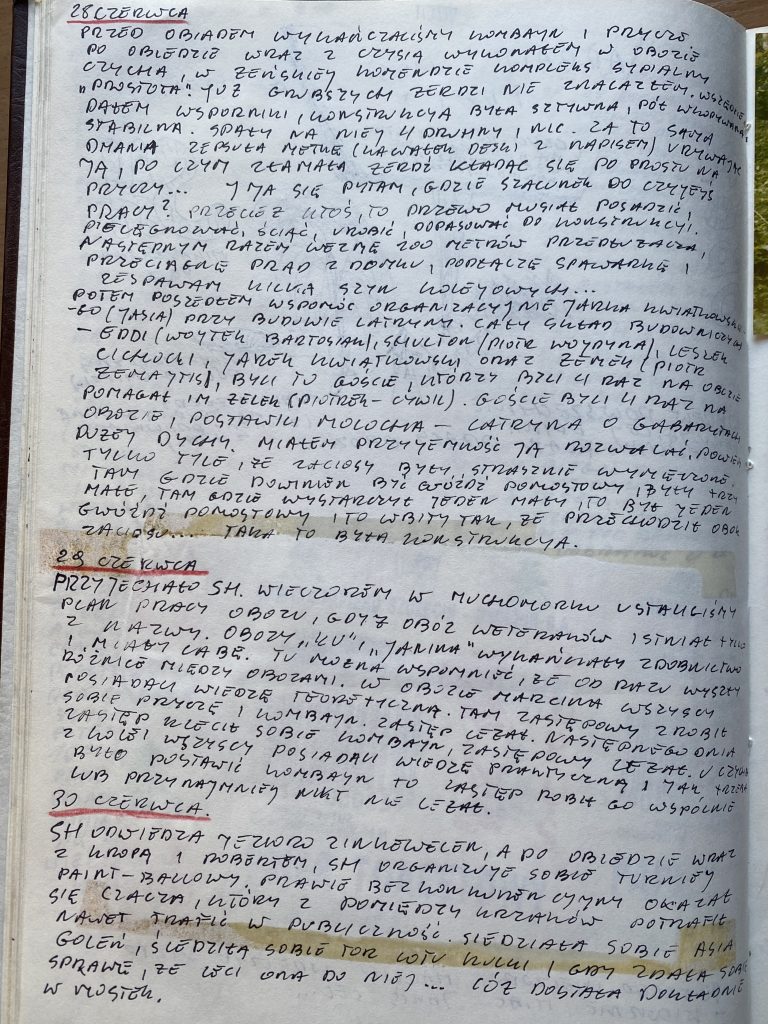 28 CZERWCA
PRZED OBIADEM WYKAŃCZALIŚMY KOMBAYN I PRYCZE
PO OBIEDZIE WRAZ Z CZYSIĄ WYKONAŁEM W OBOZIE
CZYCHA, W ŻEŃSKIEY KOMENDZIE KOMPLEKS SYPIALNY
"PROSTOTA". JUŻ GRUBSZYCH ŻERDZI NIE ZNALAZŁEM. WSZĘDZIE
DAŁEM WSPORNIKI, KONSTRUKCYA BYŁA SZTYWNA, PÓŁ WKOPYWANA,
STABILNA. SPAŁY NA NIEY 4 DRUHNY I NIC. ZA TO SAMA
DMANIA ZEPSUŁA METKĘ (KAWAŁEK DESKI Z NAPISEM) URYWAJĄC
JĄ, PO CZYM ZŁAMAŁA ŻERDŹ KŁADĄC SIĘ PO PROSTU NA
PRYCZY... I JA SIĘ PYTAM, GDZIE SZACUNEK DO CZYJEYŚ
PRACY? PRZECIEŻ KTOŚ, TO DRZEWO MUSIAŁ POSADZIĆ,
PIELĘGNOWAĆ, ŚCIĄĆ, UROBIĆ, DOPASOWAĆ DO KONSTRUKCYI.
NASTĘPNYM RAZEM WEZMĘ 200 METRÓW PRZEDŁUŻACZA,
PRZECIĄGNĘ PRĄD Z DOMKU, PODŁĄCZĘ SPAWARKĘ I
ZESPAWAM KILKA SZYN KOLEYOWYCH...
POTEM POSZEDŁEM WSPOMÓC ORGANIZACYJNIE JARKA KWIATKOWSKIE-
-GO (JASIA) PRZY BUDOWIE LATRYNY. CAŁY SKŁAD BUDOWNICZYCH
- EDDI (WOYTEK BARTOSIAK), SHULTON (PIOTR WOYDYNA), LESZEK
CICHOCKI, JAREK KWIATKOWSKI ORAZ ZEMEK (PIOTR
ŻEMAYTIS), BYLI TO GOŚCIE, KTÓRZY BYLI 4 RAZ NA OBOZIE
POMAGAŁ IM ZELEK (PIOTREK - CYWIL). GOŚCIE BYLI 4 RAZ NA
OBOZIE, POSTAWILI MOLOCHA - LATRYNA O GABARYTACH
DUŻEY DYCHY. MIAŁEM PRZYYEMNOŚĆ JĄ ROZWALAĆ, POWIEM
TYLKO TYLE, ŻE ZACIOSY BYŁY, STRASZNIE WYMĘCZONE.
TAM GDZIE POWINIEN BYĆ GWÓŹDŹ POMOSTOWY, BYŁY TRZY
MAŁE, TAM GDZIE WYSTARCZYŁ JEDEN MAŁY, TO BYŁ JEDEN
GWÓŹDŹ POMOSTOWY I TO WBITY TAK, ŻE PRZECHODZIŁ OBOK
ZACIOSU... TAKA TO BYŁA KONSTRUKCYA.
29 CZERWCA
PRZYJECHAŁO SH. WIECZOREM W MUCHOMORKU USTALILIŚMY
PLAN PRACY OBOZU, GDYŻ OBÓZ WETERANÓW ISTNIAŁ TYLKO
Z NAZWY. OBOZY "KU" I "JANINA" WYKAŃCZAŁY ZDOBNICTWO
I MIAŁY LABĘ. TU MOŻNA WSPOMNIEĆ, ŻE OD RAZU WYSZŁY
RÓŻNICE MIĘDZY OBOZAMI. W OBOZIE MARCINA WSZYSCY
POSIADALI WIEDZĘ TEORETYCZNĄ. TAM ZASTĘPOWY ZROBIŁ
SOBIE PRYCZĘ I KOMBAYN. ZASTĘP LEŻAŁ. NASTĘPNEGO DNIA
ZASTĘP KLECIŁ SOBIE KOMBAYN, ZASTĘPOWY LEŻAŁ. U CZYCHA
Z KOLEI WSZYSCY POSIADALI WIEDZĘ PRAKTYCZNĄ I JAK TRZEBA
BYŁO POSTAWIĆ KOMBAYN TO ZASTĘP ROBIŁ GO WSPÓLNIE
LUB PRZYNAJMNIEY NIKT NIE LEŻAŁ.
30 CZERWCA.
SH ODWIEDZA JEZIORO ZINKEWELEN, A PO OBIEDZIE WRAZ
Z KROPĄ I ROBERTEM, SH ORGANIZUJE SOBIE TURNIEY
PAINT-BALLOWY. PRAWIE BEZKONKURENCYJNY OKAZAŁ
SIĘ CZACZA, KTÓRY Z POMIĘDZY KRZAKÓW POTRAFIŁ
NAWET TRAFIĆ W PUBLICZNOŚĆ. SIEDZIAŁA SOBIE ASIA
GOLEŃ, ŚLEDZIŁA SOBIE TOR LOTU KULKI I GDY ZDAŁA SOBIE
SPRAWĘ, ŻE LECI ONA DO NIEJ... CÓŻ DOSTAŁA DOKŁADNIE
W MOSTEK.